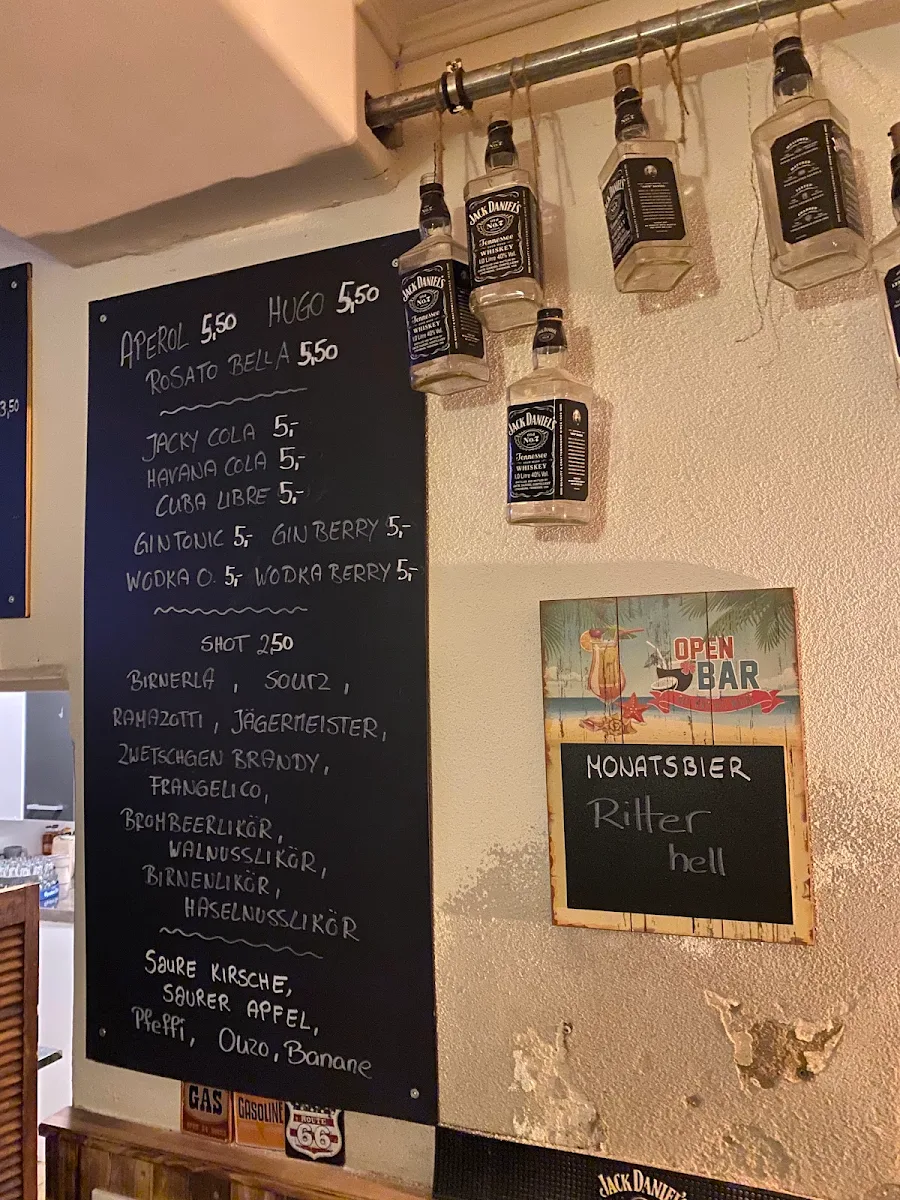 APEROL 5,50 HUGO 5,50
ROSATO BELLA 5,50
JACKY COLA 5,-
HAVANA COLA 5,-
CUBA LIBRE 5,-
GIN TONIC 5,- GIN BERRY 5,-
WODKA O. 5,- WODKA BERRY 5,-
SHOT 2,50
BIRNERLA, SOURZ,
RAMAZOTTI, JÄGERMEISTER,
ZWETSCHGEN BRANDY,
FRANGELICO,
BROMBEERLIKÖR,
WALNUSSLIKÖR,
BIRNENLIKÖR,
HASELNUSSLIKÖR
SAURE KIRSCHE,
SAURER APFEL,
Pfeffi, Ouzo, Banane
3,50
JACK DANIEL'S
OLD
No.7
Tennessee
WHISKEY
JACK DANIEL'S
OLD
No.7
Tennessee
WHISKEY
1.0 Litre 40% Vol.
JACK DANIEL'S
OLD
No.7
Tennessee
WHISKEY
1.0 Litre 40% Vol.
OPEN
BAR
MONATSBIER
Ritter
hell
GAS
GASOLINE
ROUTE
66
JACK DANIEL'S